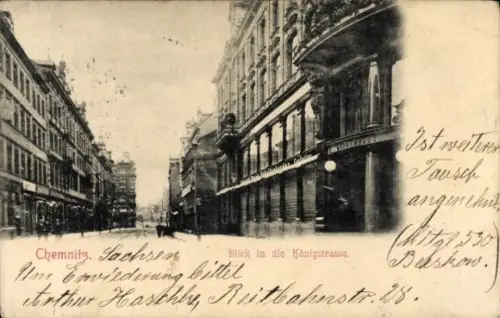 Chemnitz. Sachsen
Blick in die Königstrasse.
Um Erwiederung bittet
Arthur Haschke, Reitbahnerstr. 28.
Ist weiterer
Tausch
angenehm?
(Mitgl. 530)